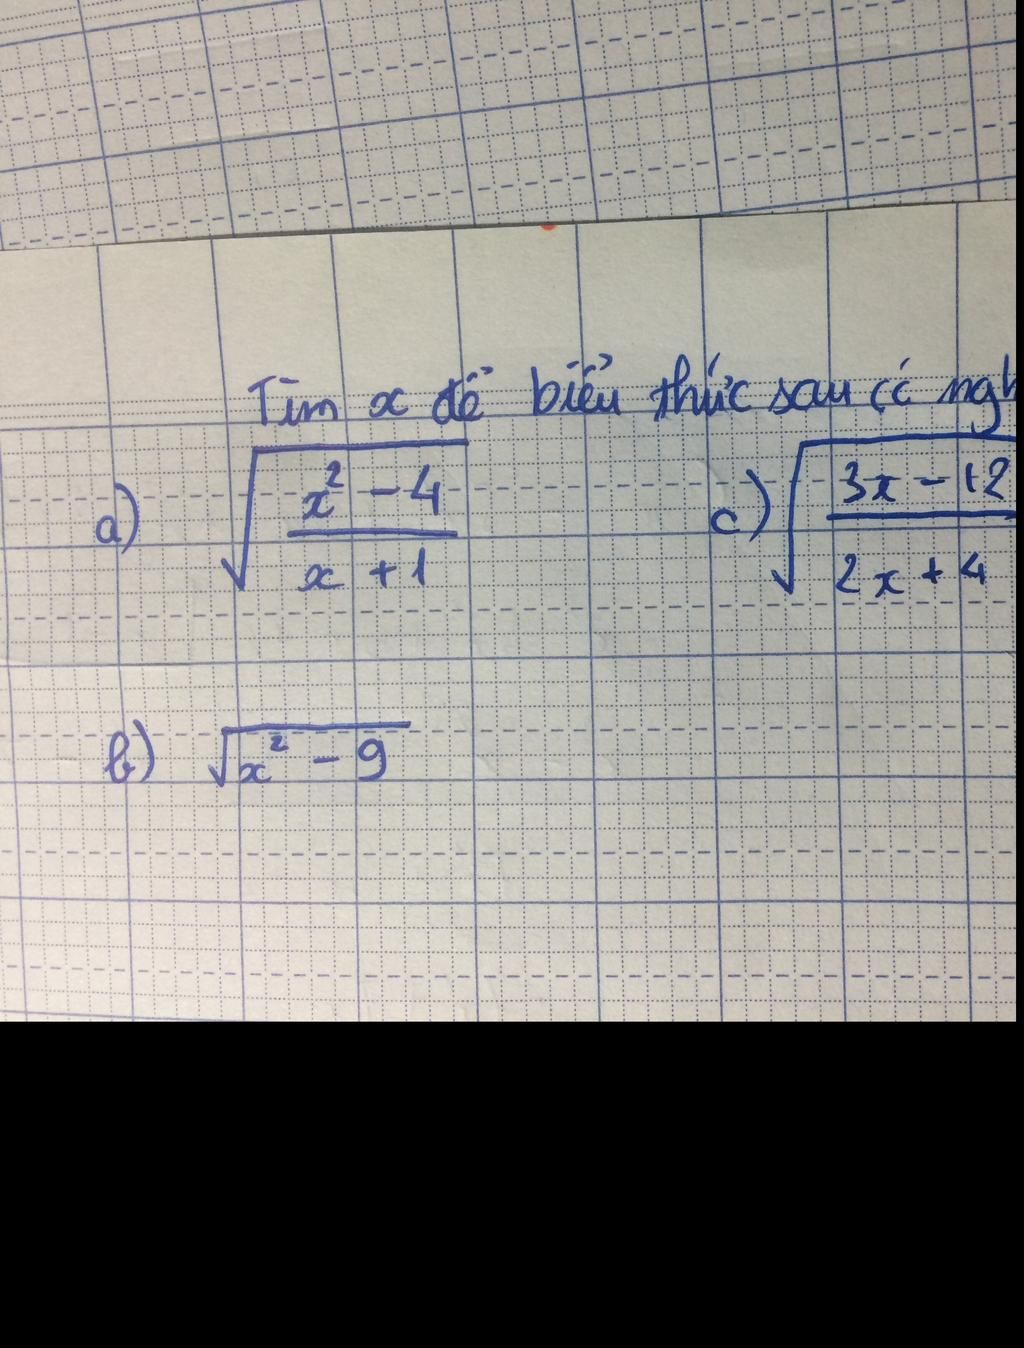 Tìm x để biểu thức sau có ngh
a) √((x² - 4)/(x + 1))
c) √((3x - 12)/(2x + 4))
b) √(x² - 9)